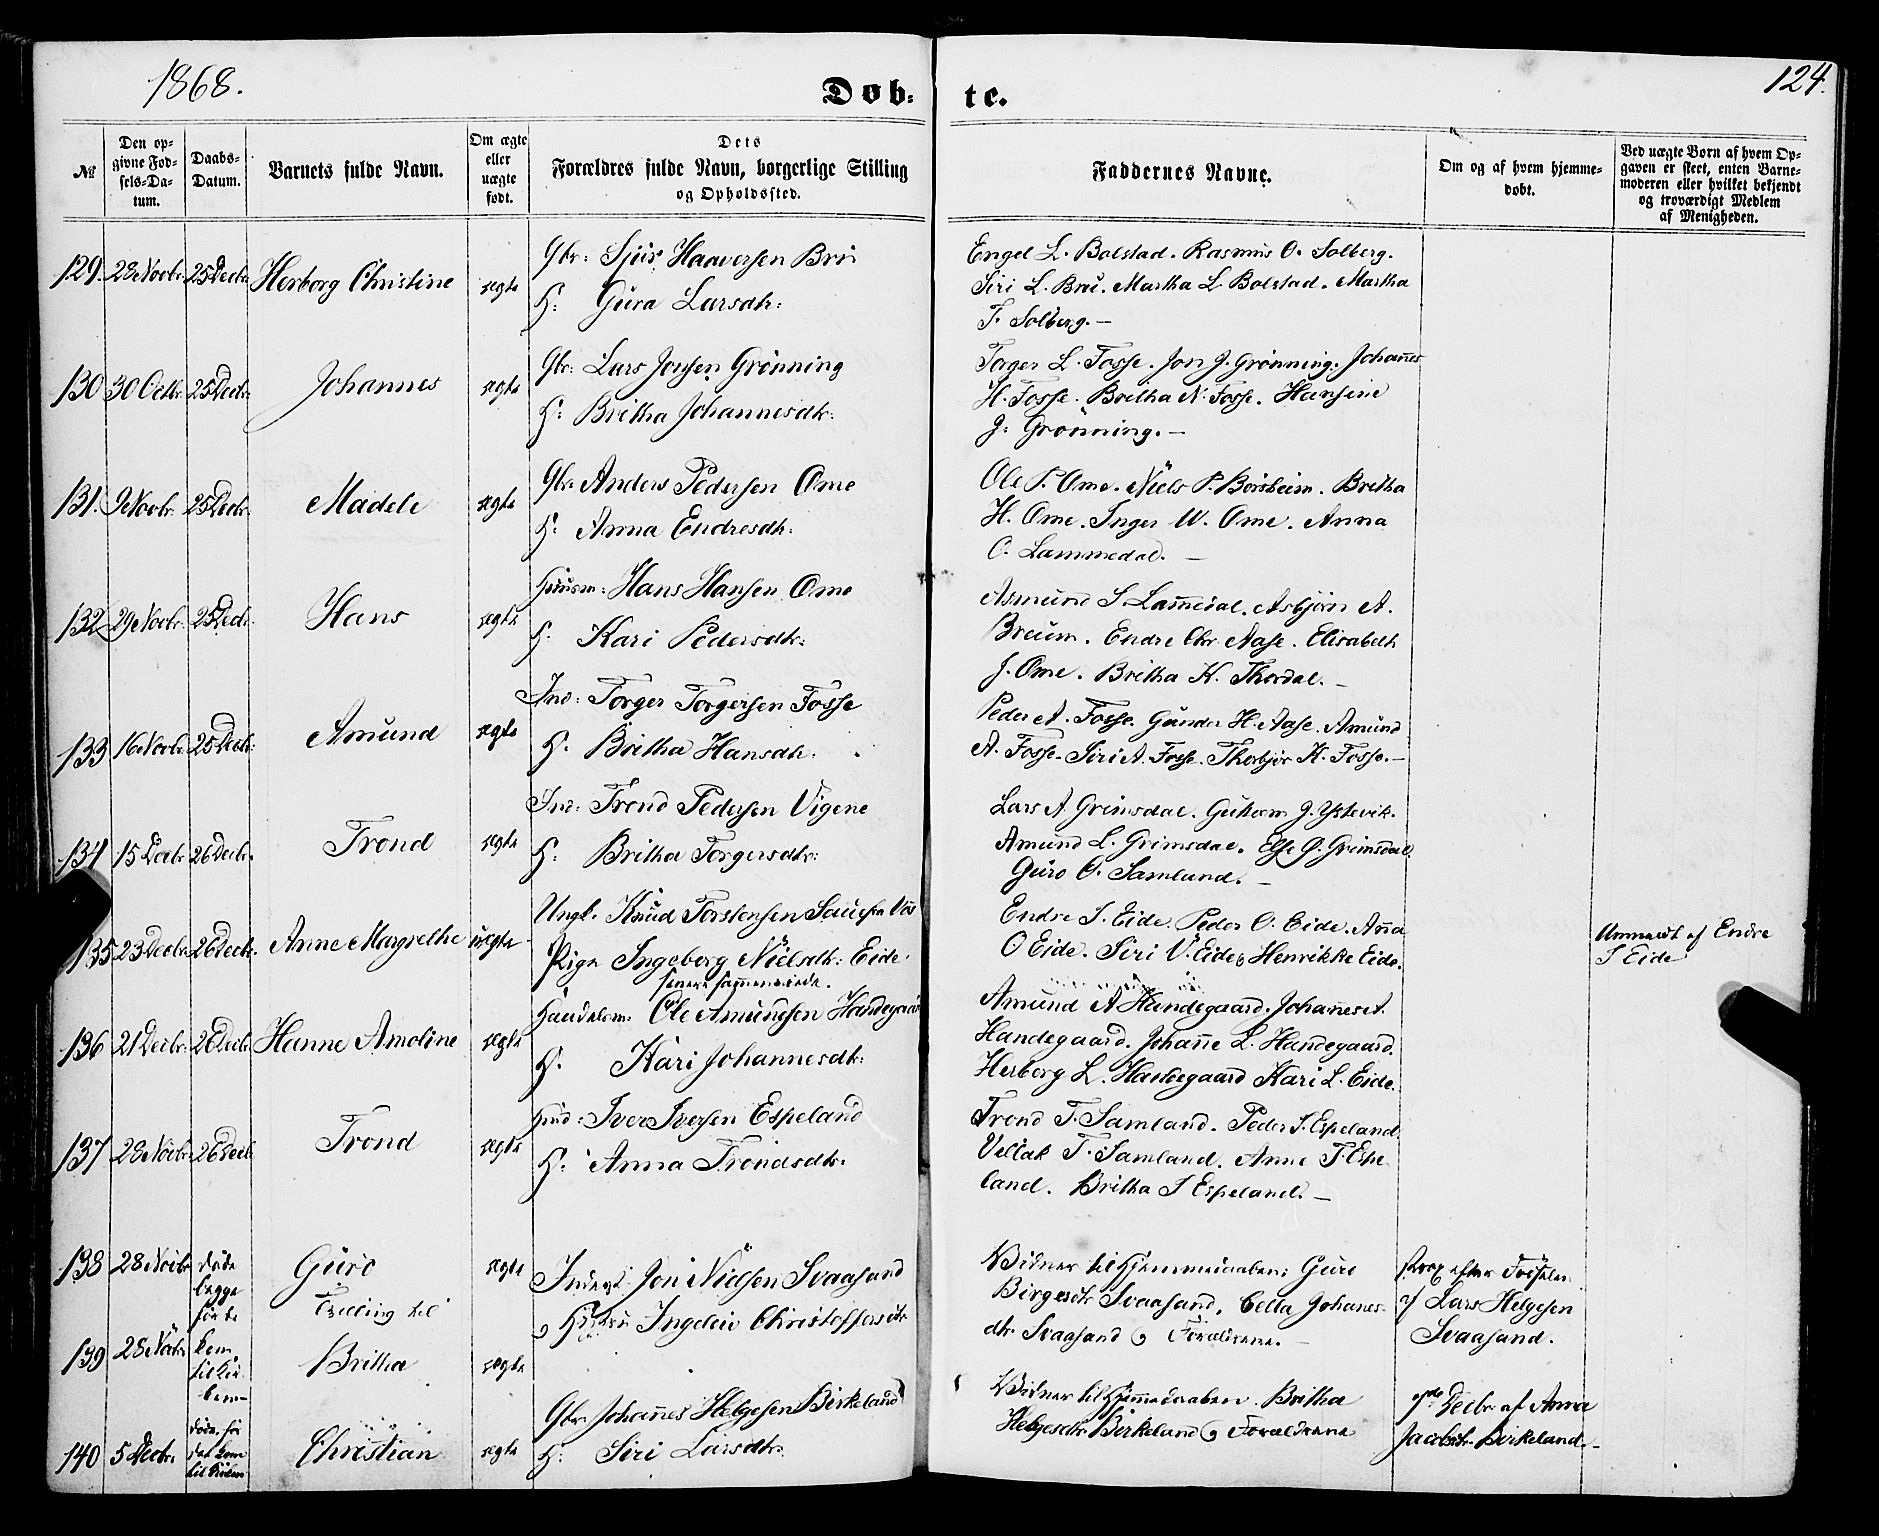 1868.
Døb-
te.
124.
№
Den op-
givne Fød-
sels-Da-
tum.
Daabs-
Datum.
Barnets fulde Navn.
Om ægte
eller
uægte
født.
Dets
Forældres fulde Navn, borgerlige Stilling
og Opholdssted.
Faddernes Navne.
Om og af hvem hjemme-
døbt.
Ved uægte Børn af hvem Op-
gaven er skeet, enten Barne-
moderen eller hvilket bekjendt
og troværdigt Medlem
af Menigheden.
129. 28 Novbr. 25 Decbr. Herborg Christine ægte
Gbr: Sjur Haaversen Bru
H: Gura Larsdtr:
Engel L. Bolstad. Rasmus O. Solberg.
Siri L. Bru. Martha L Bolstad. Martha
T. Solberg.—
130 30 Octbr. 25 Decbr. Johannes ægte
Gbr: Lars Jonsen Grønning
H: Britha Johannesdtr:
Torger L. Fosse. Jon J. Grønning. Johannes
H. Fosse. Britha N. Fosse. Hansine
J. Grønning.—
131. 9 Novbr. 25 Decbr. Madele ægte
Gbr Anders Pedersen Ome
H: Anna Endresdtr:
Ole P. Ome. Niels P. Børsheim. Britha
H. Ome. Inger W. Ome. Anna
O. Lammedal.—
132 29 Novbr. 25 Decbr. Hans ægte
Huusm: Hans Hansen Ome
H. Kari Pedersdtr:
Asmund S. Lam̄edal. Asbjørn A.
Breum. Endre Chr. Aase. Elisabeth
J. Ome. Britha K. Thordal.—
133 16 Novbr. 25 Decbr: Amund ægte
Ind: Torger Torgersen Fosse
H. Britha Hansdtr:
Peder A. Fosse. Gunder H. Aase. Amund
A. Fosse. Siri A. Fosse. Thorbjør K. Fosse.—
134 15 Decbr 26 Decbr. Trond ægte
Ind: Trond Pedersen Vigene
H: Britha Torgersdtr:
Lars A Grimsdal. Guttorm J. Ystevik.
Amund L. Grimsdal. Else G. Grimsdal.
Guro O. Samland.—
135 23 Decbr 26 Decbr. Anne Margrethe uægte
Ungk. Knud Torstensen Saue fra Vos
Pige Ingeborg Nielsdtr: Eide.
senere sammenviede.
Endre S. Eide. Peder O. Eide. An̄a
O Eide. Siri V. Eide, Henrikke Eide.
Anmeldt af Endre
S Eide
136 21 Decbr. 26 Decbr Hanne Amoline ægte
Handelsm. Ole Amundsen Handegaard
H. Kari Johannesdtr:
Amund A Handegaard. Johan̄es A.
Handegaard. Johan̄e L. Handegaard.
Herborg L. Handegaard Kari L. Eide.
137 28 Novbr. 26 Decbr Trond ægte
Iver Iversen Espeland
H. Anna Trondsdtr.
Trond T. Samland. Peder I. Espeland.
Vellak T. Samland. Anne T. Espe-
land. Britha I Espeland.—
138 28 Novbr døde Guro ægte
begge
før de
Tvilling til
139 28 Novbr kom Britha ægte
til Kir-
ken—
Jon Nielsen Svaasand
Ingelei Christoffersdtr
Vidner til Hjemmedaaben: Guro
Birgesdtr Svaasand, Cella Johanes-
dtr Svaasand og Forældrene.—
strax efter Fødselen
af Lars Helgesen
Svaasand.
140 5 Decbr. døde, før Christian ægte
det kom
til Kirken
Gbr. Johan̄es Helgesen Birkeland
H: Siri Larsdtr:
Vidner til Hjem̄edaaben. Britha
Helgesdtr Birkeland og Forældrene
7de Decbr af Anna
Jacobsdtr Birkeland.—